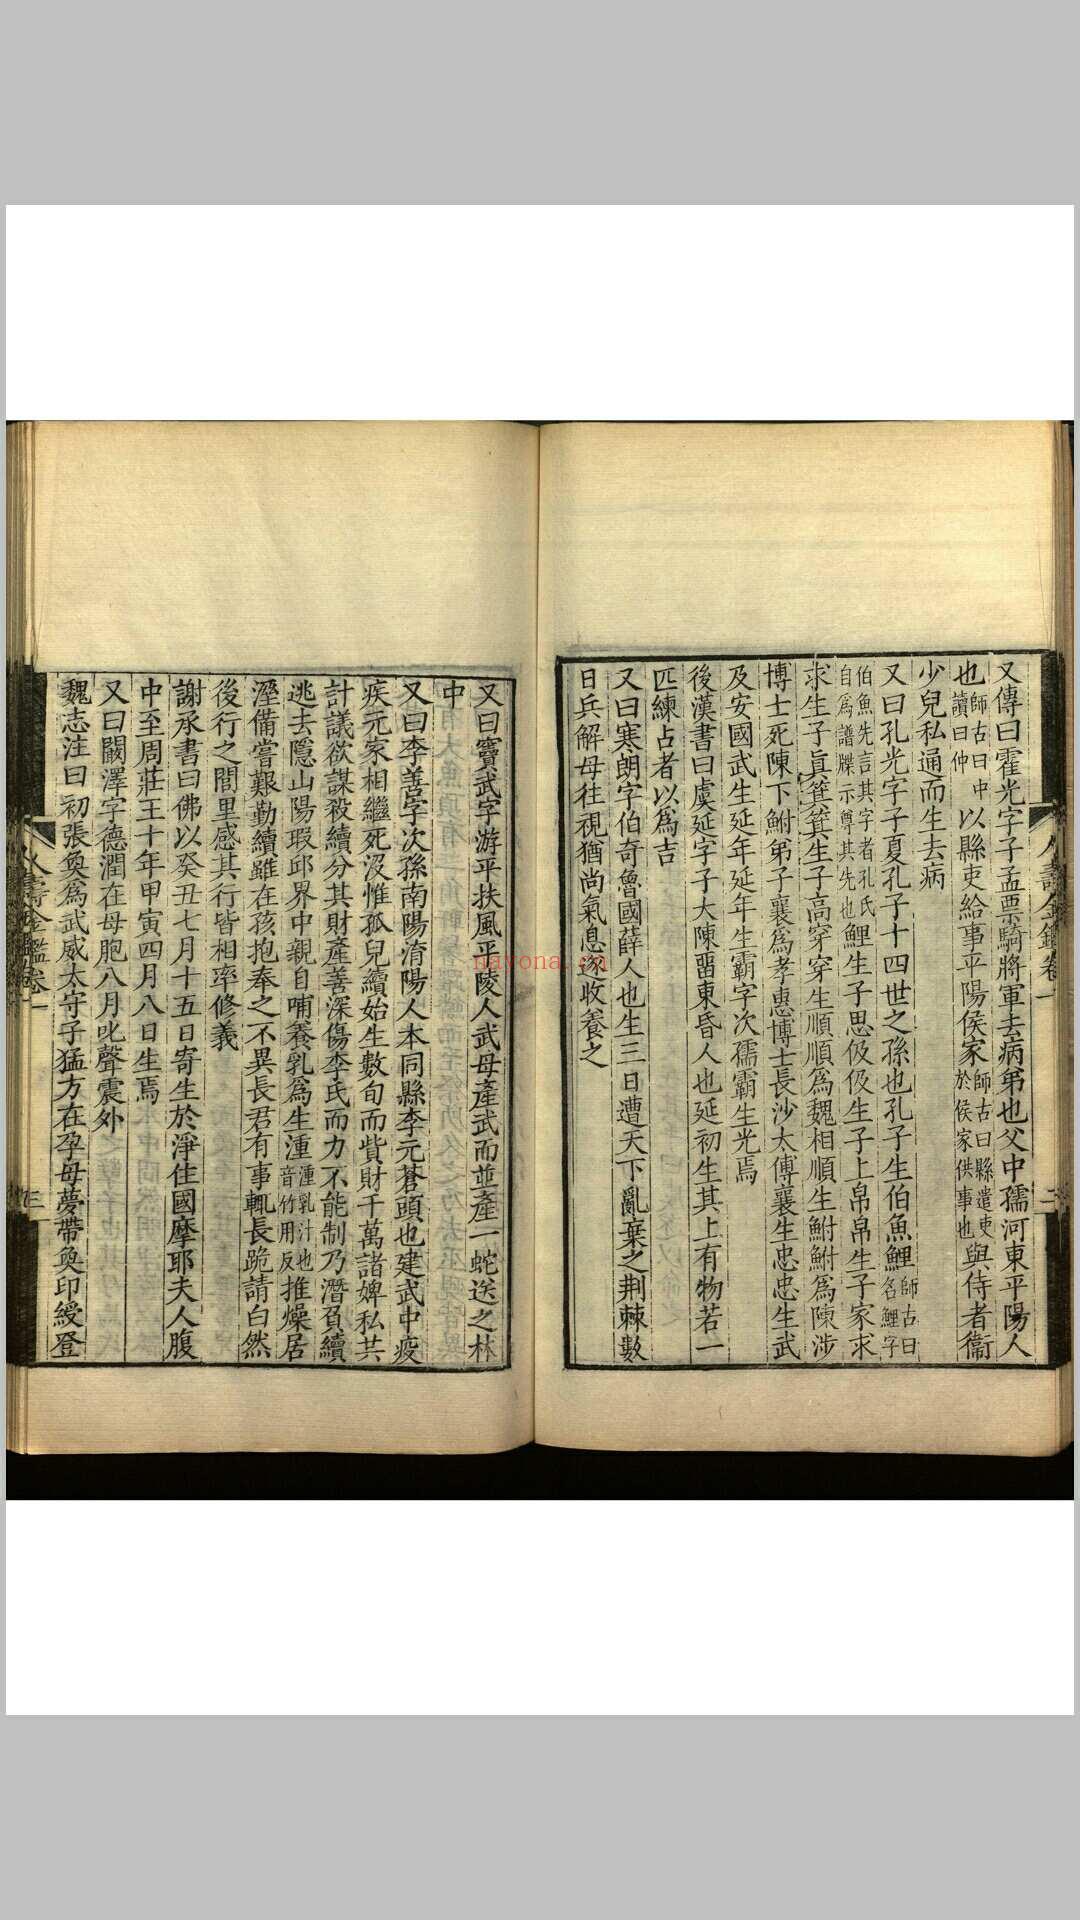 又傳曰霍光字子孟票騎將軍去病弟也父中孺河東平陽人
也師古曰中讀曰仲以縣吏給事平陽侯家師古曰縣遣吏於侯家供事也與侍者衞
少兒私通而生去病
又曰孔光字子夏孔子十四世之孫也孔子生伯魚鯉師古曰名鯉字
伯魚先言其字者孔氏自爲譜牒示尊其先也鯉生子思伋伋生子上帛帛生子家求
求生子眞箕箕生子高穿穿生順順爲魏相順生鮒鮒爲陳涉
博士死陳下鮒弟子襄爲孝惠博士長沙太傅襄生忠忠生武
及安國武生延年延年生霸字次孺霸生光焉
後漢書曰虞延字子大陳畱東昏人也延初生其上有物若一
匹練占者以爲吉
又曰寒朗字伯奇魯國薛人也生三日遭天下亂棄之荆棘數
日兵解母往視猶尚氣息遂收養之
人壽金鑑卷一
二
又曰竇武字游平扶風平陵人武母產武而並產一蛇送之林
中
又曰李善字次孫南陽淯陽人本同縣李元蒼頭也建武中疫
疾元家相繼死沒惟孤兒續始生數旬而貲財千萬諸婢私共
計議欲謀殺續分其財產善深傷李氏而力不能制乃潛負續
逃去隱山陽瑕邱界中親自哺養乳爲生湩湩乳汁也音竹用反推燥居
溼備嘗艱勤續雖在孩抱奉之不異長君有事輒長跪請白然
後行之閭里感其行皆相率修義
謝承書曰佛以癸丑七月十五日寄生於淨住國摩耶夫人腹
中至周莊王十年甲寅四月八日生焉
又曰闞澤字德潤在母胞八月叱聲震外
魏志注曰初張奐爲武威太守子猛方在孕母夢帶奐印綬登
人壽金鑑卷一
三
nayona.cn